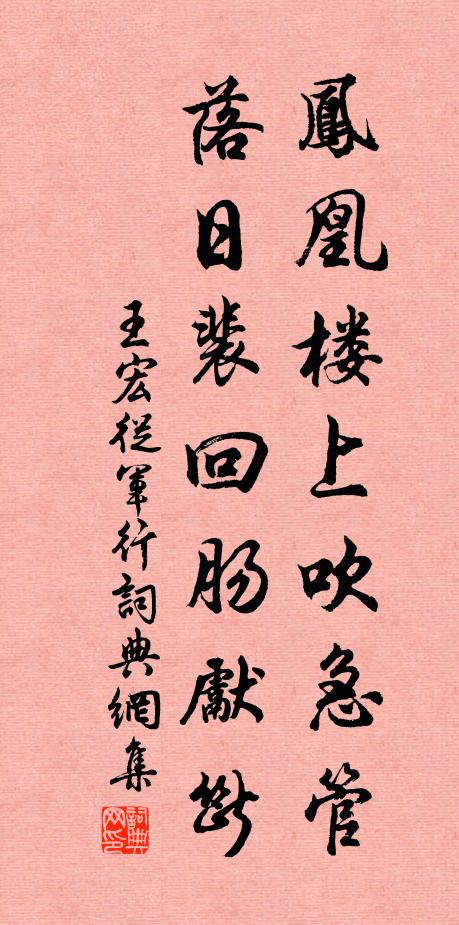 鳳凰楼上吹急管
落日裴回肠獻断
王宏從軍行詞典網集
詞典网印